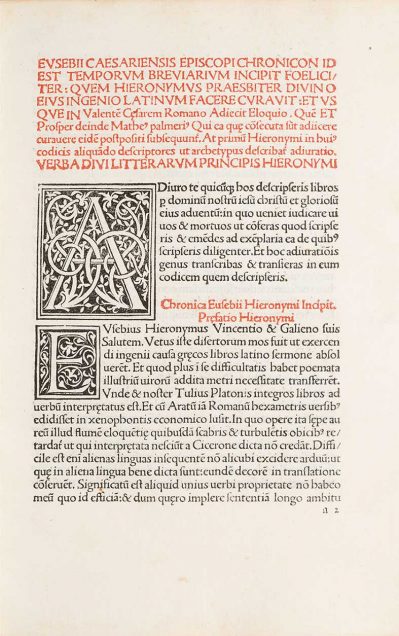 EVSEBII CAESARIENSIS EPISCOPI CHRONICON ID
EST TEMPORVM BREVIARIVM INCIPIT FOELICI/
TER: QVEM HIERONYMVS PRAESBITER DIVINO
EIVS INGENIO LATINVM FACERE CVRAVIT: ET VS
QVE IN Valentē Cęsarem Romano Adiecit Eloquio. Quē ET
Prosper deinde Matheꝰ palmeriꝰ Qui ea quę cōsecuta sūt adiicere
curauere eidē postpositi subsequunt᷑. At primū Hieronymi in huiꝰ
codicis aliquādo descriptores ut archetypus describat᷑ adiuratio.
VERBA DIVI LITTERARVM PRINCIPIS HIERONYMI
ADiuro te quicūqꝫ hos descripseris libros
ꝑ dominū nostrū iesū christū et gloriosū
eius aduentū: in quo ueniet iudicare ui
uos & mortuos ut cōferas quod scripse
ris & emēdes ad exēplaria ea de quibꝰ
scripseris diligenter. Et hoc adiuratiōis
genus transcribas & transferas in eum
codicem quem descripseris.
Chronica Eusebii Hieronymi Incipit.
Pręfatio Hieronymi
EVsebius Hieronymus Vincentio & Galieno suis
Salutem. Vetus iste disertorum mos fuit ut exercen
di ingenii causa gręcos libros latino sermone absol
uerēt. Et quod plus ī se difficultatis habet poemata
illustriū uirorū addita metri necessitate transferrēt.
Vnde & noster Tulius Platonis integros libros ad
uerbū interpretatus est. Et cū Aratū iā Romanū hexametris uersibꝰ
edidisset in xenophontis economico lusit. In quo opere ita sępe au
reū illud flumē eloquētię quibusdā scabris & turbulētis obicibꝰ re/
tardat᷑ ut qui interpretata nesciūt a Cicerone dicta nō credāt. Diffi/
cile est eni alienas linguas insequentē nō alicubi excidere arduū: ut
quę in aliena lingua bene dicta sunt: eundē decorē in translatione
cōseruēt. Significatū est aliquid unius uerbi proprietate nō habeo
meū quo id efficiā: & dum quęro implere sententiā longo ambitu
a 2